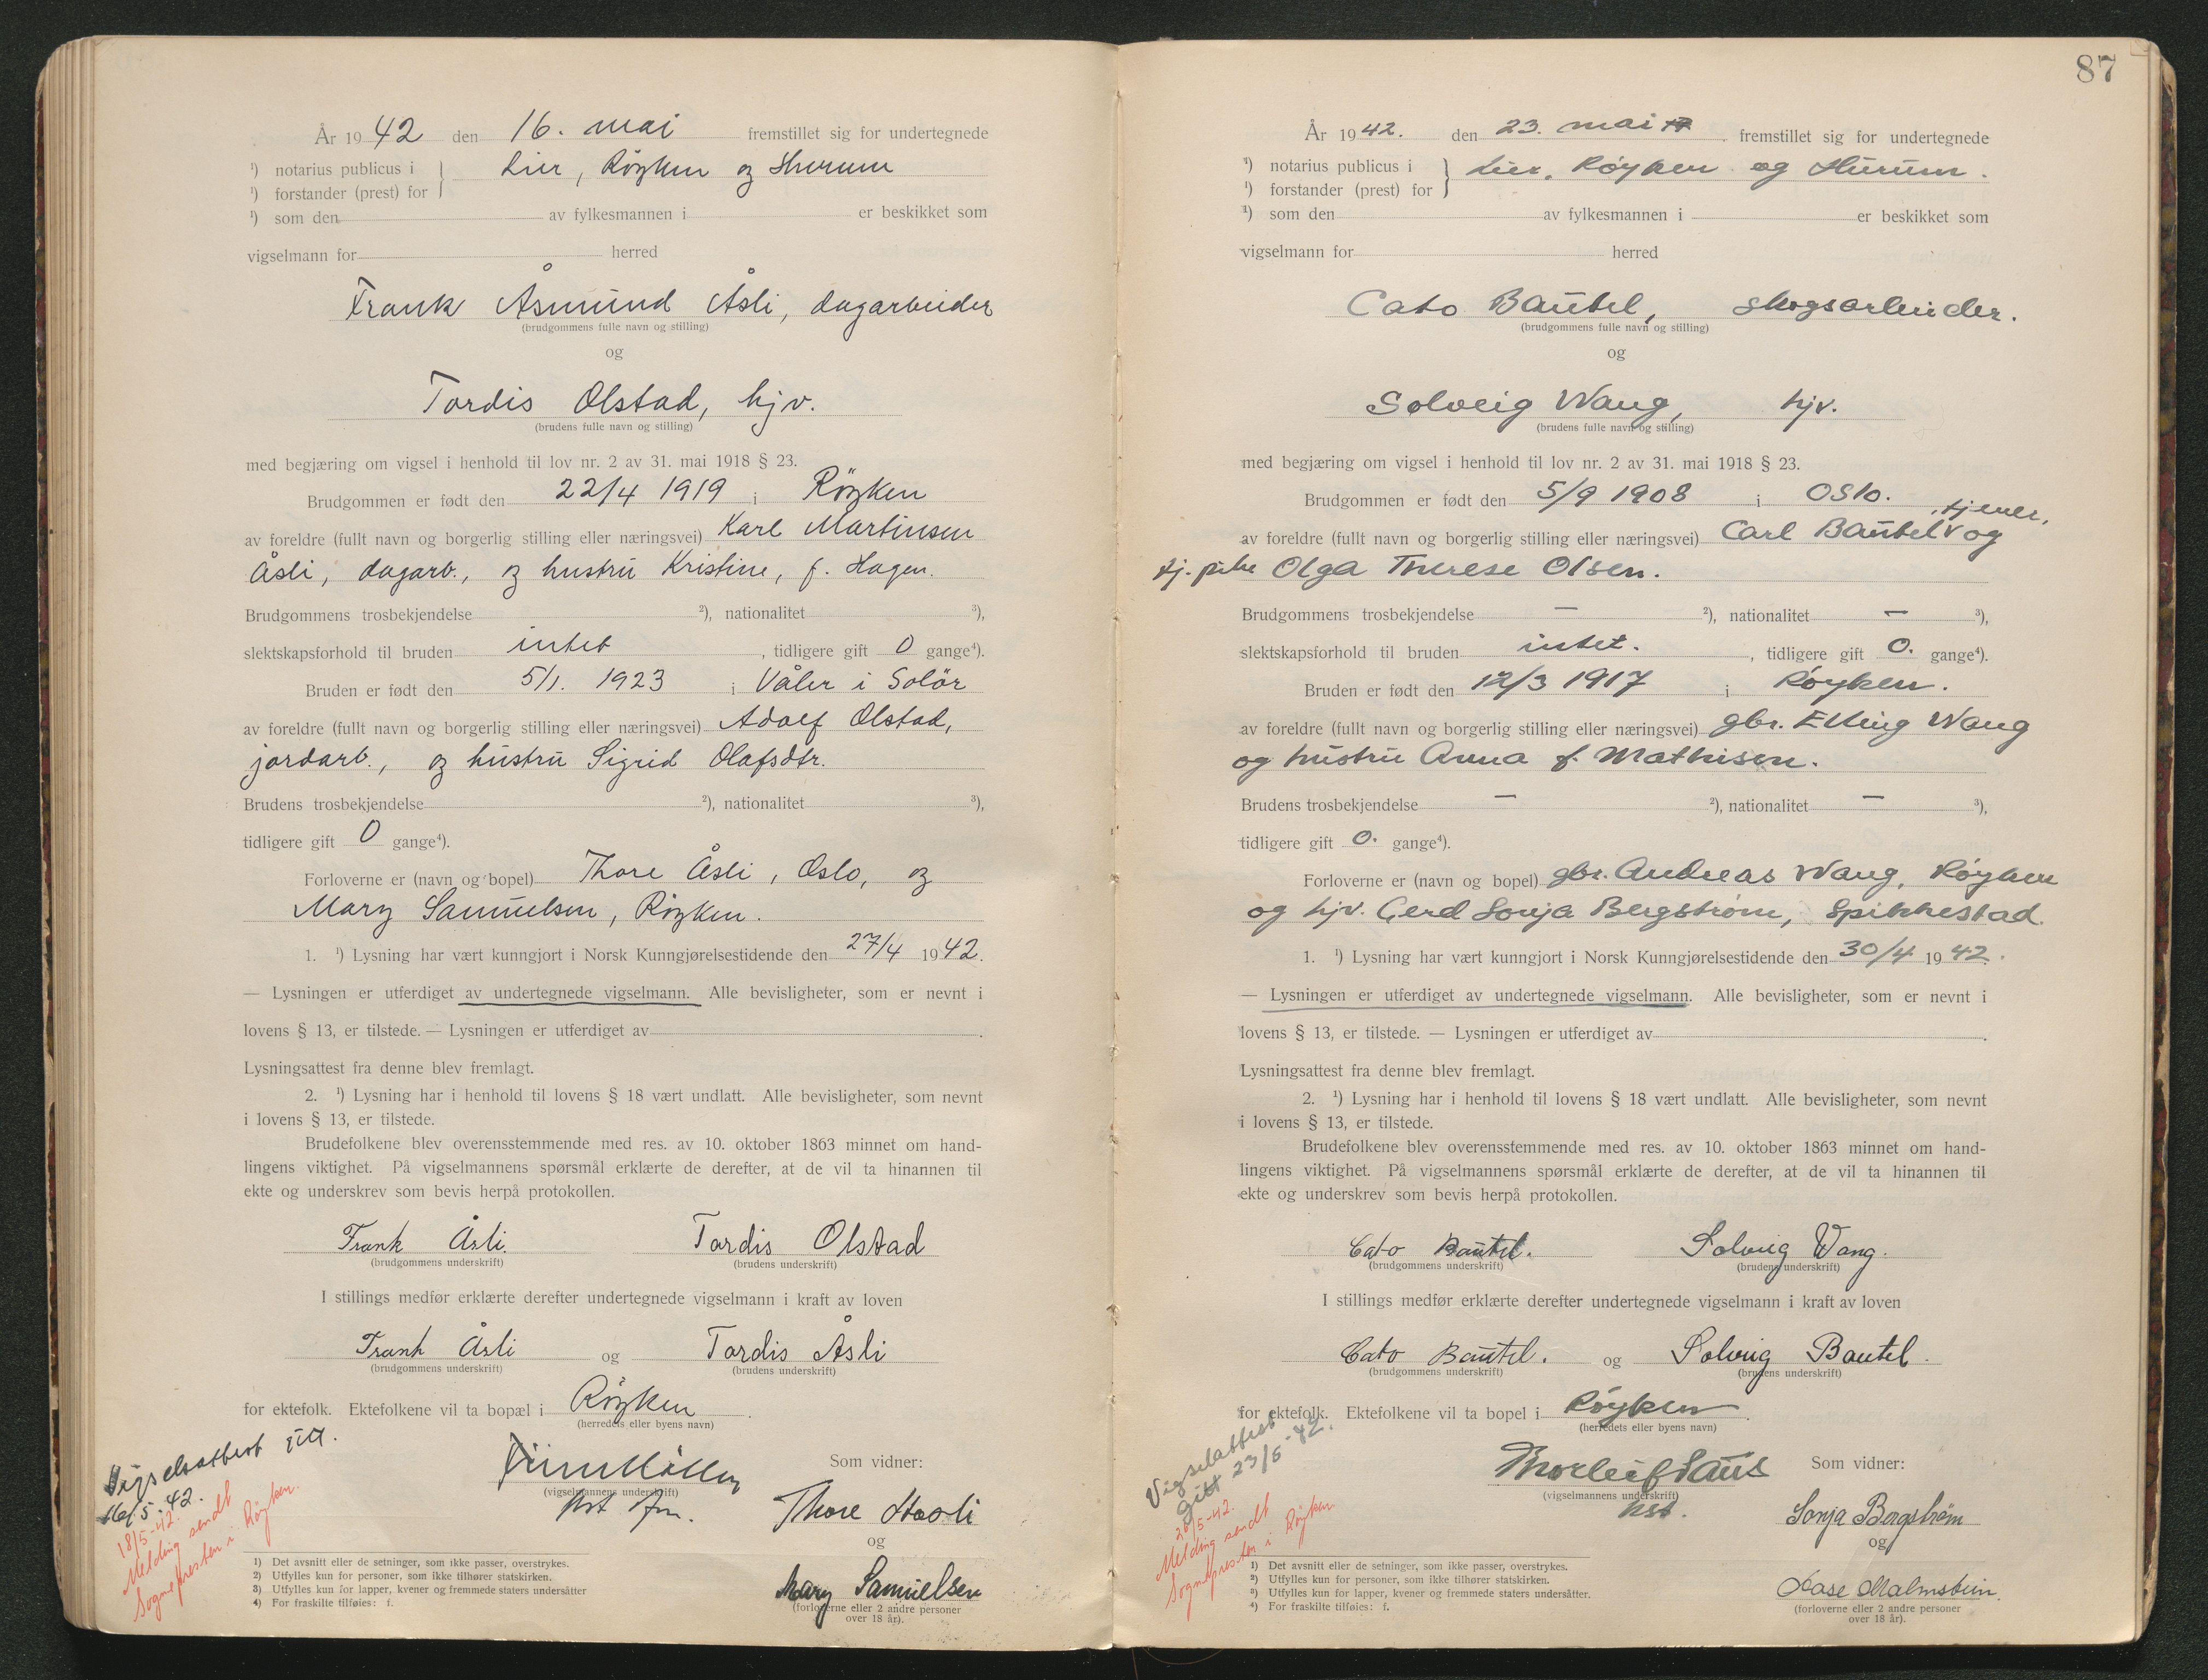 År 1942 den 16. mai fremstillet sig for undertegnede
¹) notarius publicus i } Lier, Röyken og Hurum
¹) forstander (prest) for
¹) som den av fylkesmannen i er beskikket som
vigselmann for herred
Frank Åsmund Åsli, dagarbeider
(brudgommens fulle navn og stilling)
og
Tordis Olstad, hjv.
(brudens fulle navn og stilling)
med begjæring om vigsel i henhold til lov nr. 2 av 31. mai 1918 § 23.
Brudgommen er født den 22/4 1919 i Röyken
av foreldre (fullt navn og borgerlig stilling eller næringsvei) Karl Martinsen
Åsli, dagarb., og hustru Kristine, f. Hagen.
Brudgommens trosbekjendelse ²), nationalitet ³),
slektskapsforhold til bruden intet, tidligere gift 0 gange⁴).
Bruden er født den 5/1. 1923 i Våler i Solör
av foreldre (fullt navn og borgerlig stilling eller næringsvei) Adolf Olstad,
jordarb., og hustru Sigrid Olafsdtr.
Brudens trosbekjendelse ²), nationalitet ³),
tidligere gift 0 gange⁴).
Forloverne er (navn og bopel) Thore Åsli, Oslo, og
Mary Samuelsen, Röyken.
1. ¹) Lysning har vært kunngjort i Norsk Kunngjørelsestidende den 27/4 1942.
— Lysningen er utferdiget av undertegnede vigselmann. Alle bevisligheter, som er nevnt i
lovens § 13, er tilstede. — Lysningen er utferdiget av .
Lysningsattest fra denne blev fremlagt.
2. ¹) Lysning har i henhold til lovens § 18 vært undlatt. Alle bevisligheter, som nevnt
i lovens § 13, er tilstede.
Brudefolkene blev overensstemmende med res. av 10. oktober 1863 minnet om hand-
lingens viktighet. På vigselmannens spørsmål erklærte de derefter, at de vil ta hinannen til
ekte og underskrev som bevis herpå protokollen.
Frank Åsli. Tordis Olstad
(brudgommens underskrift) (brudens underskrift)
I stillings medfør erklærte derefter undertegnede vigselmann i kraft av loven
Frank Åsli og Tordis Åsli
(brudgommens underskrift) (brudens underskrift)
for ektefolk. Ektefolkene vil ta bopæl i Röyken.
(herredets eller byens navn)
Vigselsattest gitt.
16/5-42.
18/5-42.
Melding sendt
Sognepresten i Röyken.
(vigselmannens underskrift)
Som vidner:
Thore Haasli
og
Mary Samuelsen
(forloverne eller 2 andre personer
over 18 år).
1) Det avsnitt eller de setninger, som ikke passer, overstrykes.
2) Utfylles kun for personer, som ikke tilhører statskirken.
3) Utfylles kun for lapper, kvener og fremmede staters undersåtter
4) For fraskilte tilføies: f.
87
År 1942. den 23. mai fremstillet sig for undertegnede
¹) notarius publicus i } Lier, Røyken og Hurum.
¹) forstander (prest) for
¹) som den av fylkesmannen i er beskikket som
vigselmann for herred
Cato Bautel, skogsarbeider.
(brudgommens fulle navn og stilling)
og
Solveig Wang, hjv.
(brudens fulle navn og stilling)
med begjæring om vigsel i henhold til lov nr. 2 av 31. mai 1918 § 23.
Brudgommen er født den 5/9 1908 i Oslo.
av foreldre (fullt navn og borgerlig stilling eller næringsvei) Carl Bautel, tjener, og
tj. pike Olga Therese Olsen.
Brudgommens trosbekjendelse — ²), nationalitet — ³),
slektskapsforhold til bruden intet., tidligere gift 0. gange⁴).
Bruden er født den 12/3 1917 i Røyken.
av foreldre (fullt navn og borgerlig stilling eller næringsvei) gbr. Elling Wang
og hustru Anna f. Mathisen.
Brudens trosbekjendelse — ²), nationalitet — ³),
tidligere gift 0. gange⁴).
Forloverne er (navn og bopel) gbr. Andreas Wang, Røyken
og hjv. Gerd Sonja Bergstrøm, Spikkestad.
1. ¹) Lysning har vært kunngjort i Norsk Kunngjørelsestidende den 30/4 1942.
— Lysningen er utferdiget av undertegnede vigselmann. Alle bevisligheter, som er nevnt i
lovens § 13, er tilstede. — Lysningen er utferdiget av .
Lysningsattest fra denne blev fremlagt.
2. ¹) Lysning har i henhold til lovens § 18 vært undlatt. Alle bevisligheter, som nevnt
i lovens § 13, er tilstede.
Brudefolkene blev overensstemmende med res. av 10. oktober 1863 minnet om hand-
lingens viktighet. På vigselmannens spørsmål erklærte de derefter, at de vil ta hinannen til
ekte og underskrev som bevis herpå protokollen.
Cato Bautel. Solveig Wang.
(brudgommens underskrift) (brudens underskrift)
I stillings medfør erklærte derefter undertegnede vigselmann i kraft av loven
Cato Bautel. og Solveig Bautel.
(brudgommens underskrift) (brudens underskrift)
for ektefolk. Ektefolkene vil ta bopel i Røyken.
(herredets eller byens navn)
Vigselattest
gitt 23/5-42.
26/5-42.
Melding sendt
Sognepresten i Röyken.
Thorleif Paus
(vigselmannens underskrift)
hst.
Som vidner:
Sonja Bergstrøm
og
Aase Malmstein.
(forloverne eller 2 andre personer
over 18 år).
1) Det avsnitt eller de setninger, som ikke passer, overstrykes.
2) Utfylles kun for personer, som ikke tilhører statskirken.
3) Utfylles kun for lapper, kvener og fremmede staters undersåtter.
4) For fraskilte tilføies: f.